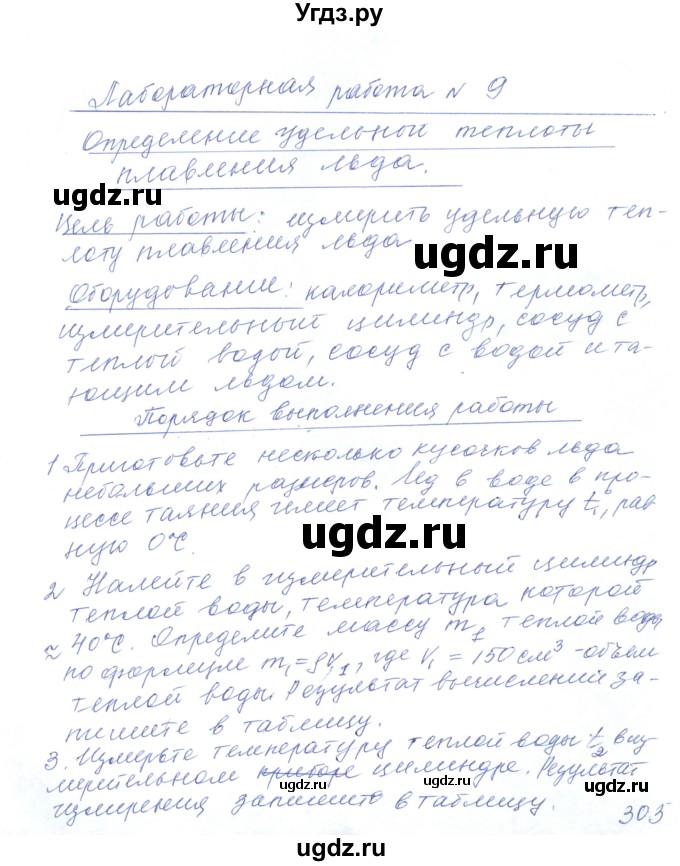 Угдз.ру
Лабораторная работа № 9
Определение удельной теплоты
плавления льда.
Цель работы: измерить удельную теп-
лоту плавления льда
ugdz.ru
ugdz.ru
Оборудование: калориметр, термометр,
измерительный цилиндр, сосуд с
теплой водой, сосуд с водой и та-
ющим льдом.
ugdz.ru
Порядок выполнения работы
1 Приготовьте несколько кусочков льда
небольших размеров. Лед в воде в про-
цессе таяния имеет температуру t₁, рав-
ную 0°C.
ugdz.ru
2 Налейте в измерительный цилиндр
теплой воды, температура которой
≈ 40°C. Определите массу m₁ теплой воды
по формуле m₁=ρV₁, где V₁ = 150 см³ - объем
теплой воды. Результат вычислений за-
пишите в таблицу.
ugdz.ru
ugdz.ru
3. Измерьте температуру теплой воды t₂ в из
мерительном приборе цилиндре. Результат
измерения запишите в таблицу.
305
ugdz.ru
ugdz.ru